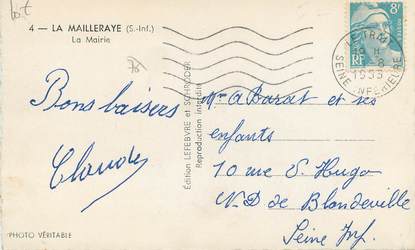 4 — LA MAILLERAYE (S.-Inf.)
La Mairie
8F
POSTES
RF
1953
SEINE INFERIEURE
Bons baisers
Claude
Edition LEFEBVRE et SCHRODER
Reproduction interdite
Mme A Barat et ses
enfants
10 rue V. Hugo
N.D de Blondeville
Seine Inf.
PHOTO VÉRITABLE